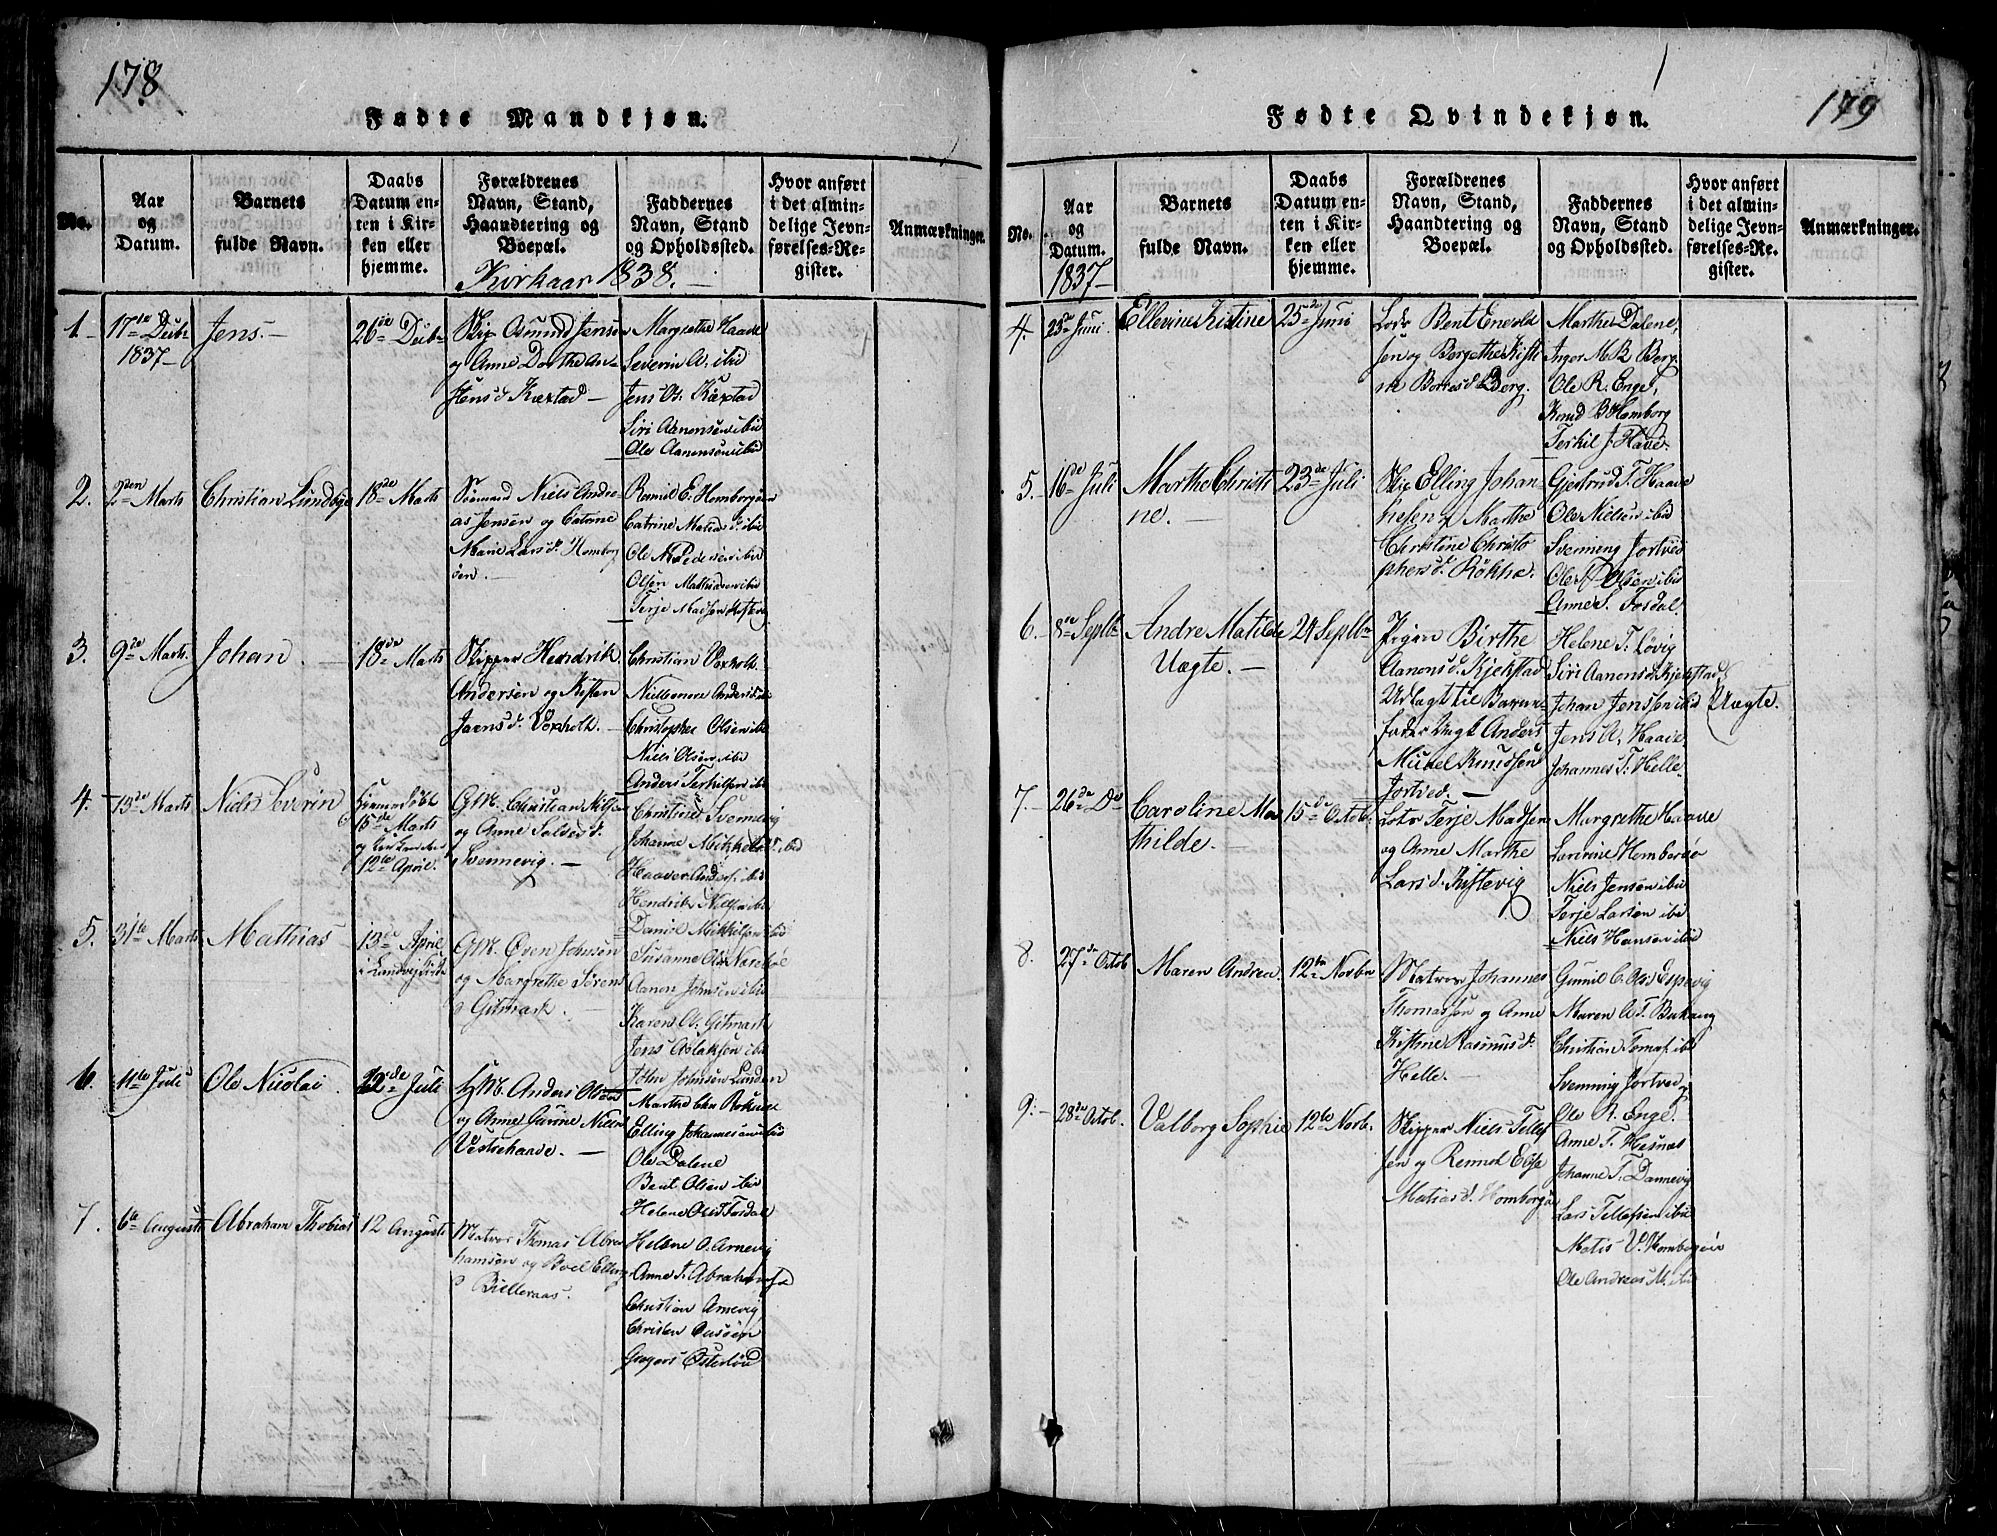 178
Fødte Mandkjøn.
No.
Aar
og
Datum.
Barnets
fulde Navn.
Daabs
Datum en-
ten i Kir-
ken eller
hjemme.
Forældrenes
Navn, Stand,
Haandtering og
Boepæl.
Faddernes
Navn, Stand
og Opholdssted.
Hvor anført
i det almin-
delige Jevn-
førelses-Re-
gister.
Anmærkninger.
Kirkaar 1838.
1. 17de Decb
1837
Jens.
26de Decb
Skip Osmund Jensen
og Anne Dorthe
Margrethe Haave
Severin A. ibid
Jens Os. Kæxtad
Siri Aanonsen ibid
Ole Aanonsen ibid
2. 2den Marts
Christian Lundbye
18de Marts
Sømand Niels Andre
as Jensen og Catrine
Marie Larsd. Hombog
øen.
Catrine Matiasd. ibid
Ole N Pedersen ibid
Olsen Mathisøen ibid
Terje Madsen Kiftevig
3. 9de Marts
Johan.
18de Marts
Skipper Hendrik
Andersen og Kisten
Jaensd. Voxholt.
Christian Voxholt
Christopher Olsen ibid
Niels Olsen ibid
Anders Terkilsen ibid
4. 13de Marts
Niels Severin
15de Marts
12te April.
G.M. Christian Nilsen
og Anne Salvesd.
Svennevig.
Johanne Mikkelsd. ibid
Haaver Anders. ibid
Hendrik Nilsen ibid
Daniel Mikkelsen ibid
5. 31te Marts
Mathias
13de April
G.M. Øven Johnsen
og Margrethe Sørens
d Gitmark.
Susanne Olsd
Aanon Johnsen ibid
Karen O. Gitmark
Jens Aslaksen ibid
John Johnsen Lunden
6. 11te Juli
Ole Nicolai.
22de Juli
G.M. Anders Olsen
og Anne Gurine Niels
Vestrehaave.
Elling Johannesen ibid
Ole Dalene
Bent Olsen ibid
Helene Olsd Fosdal
7. 6te Auguste
Abraham Thobias
12 Auguste
Matros Thomas Abra
hamsen og Boel Elling
d Bielleraas.
Helene O. Arnevig
Anne T. Abrahamsd
Christian Arnevig
Gregers Osterhoe
179
Fødte Qvindekjøn.
No.
Aar
og
Datum.
1837
Barnets
fulde Navn.
Daabs
Datum en-
ten i Kir-
ken eller
hjemme.
Forældrenes
Navn, Stand,
Haandtering og
Boepæl.
Faddernes
Navn, Stand
og Opholdssted.
Hvor anført
i det almin-
delige Jevn-
førelses-Re-
gister.
Anmærkninger.
4. 23de Juni
Ellevine Kistine
25de Juni
Lods Bent Enevold
sen og Bergethe Kisti
ne Bentsd. Berg.
Marthe Dalene,
Inger M.B. Berg.
Ole R. Enge,
Knud B Homborg
Terkil J. Haave
5. 16de Juli
Marthe Christi
ne.
23de Juli
Skip Elling Johan
nesen og Marthe
Christine Christo
phersd. Røkhe.
Gjertrud T. Haave
Ole Nielsen ibid
Svenning Jortved
Ole Olsen ibid
Anne S. Fosdal.
6. 8de Septb
Andre Matilde
Uægte.
24 Septbr
Pigen Birthe
Aanonsd. Kjekstad
Udlagt til Barne
fader Ungk Anders
Mickel Knudsen
Jortved.
Helene T. Løvig
Siri Aanonsd Kjekstad
Johan Jensen ibid
Jens A. Haave.
Johannes T. Helle
Uægte.
7. 26de
Caroline Ma
thilde.
15de Octob.
Lots Terje Madsen
og Anne Marthe
Larsd. Kiftevig
Margrethe Haave
Niels Jensen ibid
Terje Larsen ibid
Niels Hansen ibid
8. 27de Octob
Maren Andrea.
12te Novbr
Matros Johannes
Thomassen og Anne
Kistine Rasmusd.
Helle.
Gunild C. Olsd Espevig
Christian Tomas. ibid
Svenning Jortved
Ole R. Enge.
9. 28de Octob.
Valborg Sophie
12te Novb.
Skipper Niels Tellef
sen og Rennod Elise
Matiasd. Homborgø
Anne T. Hæsnæs
Johanne T. Dannevig
Lars Tellefsen ibid
Matis V. Homborgøe
Ole Andreas M. ibid